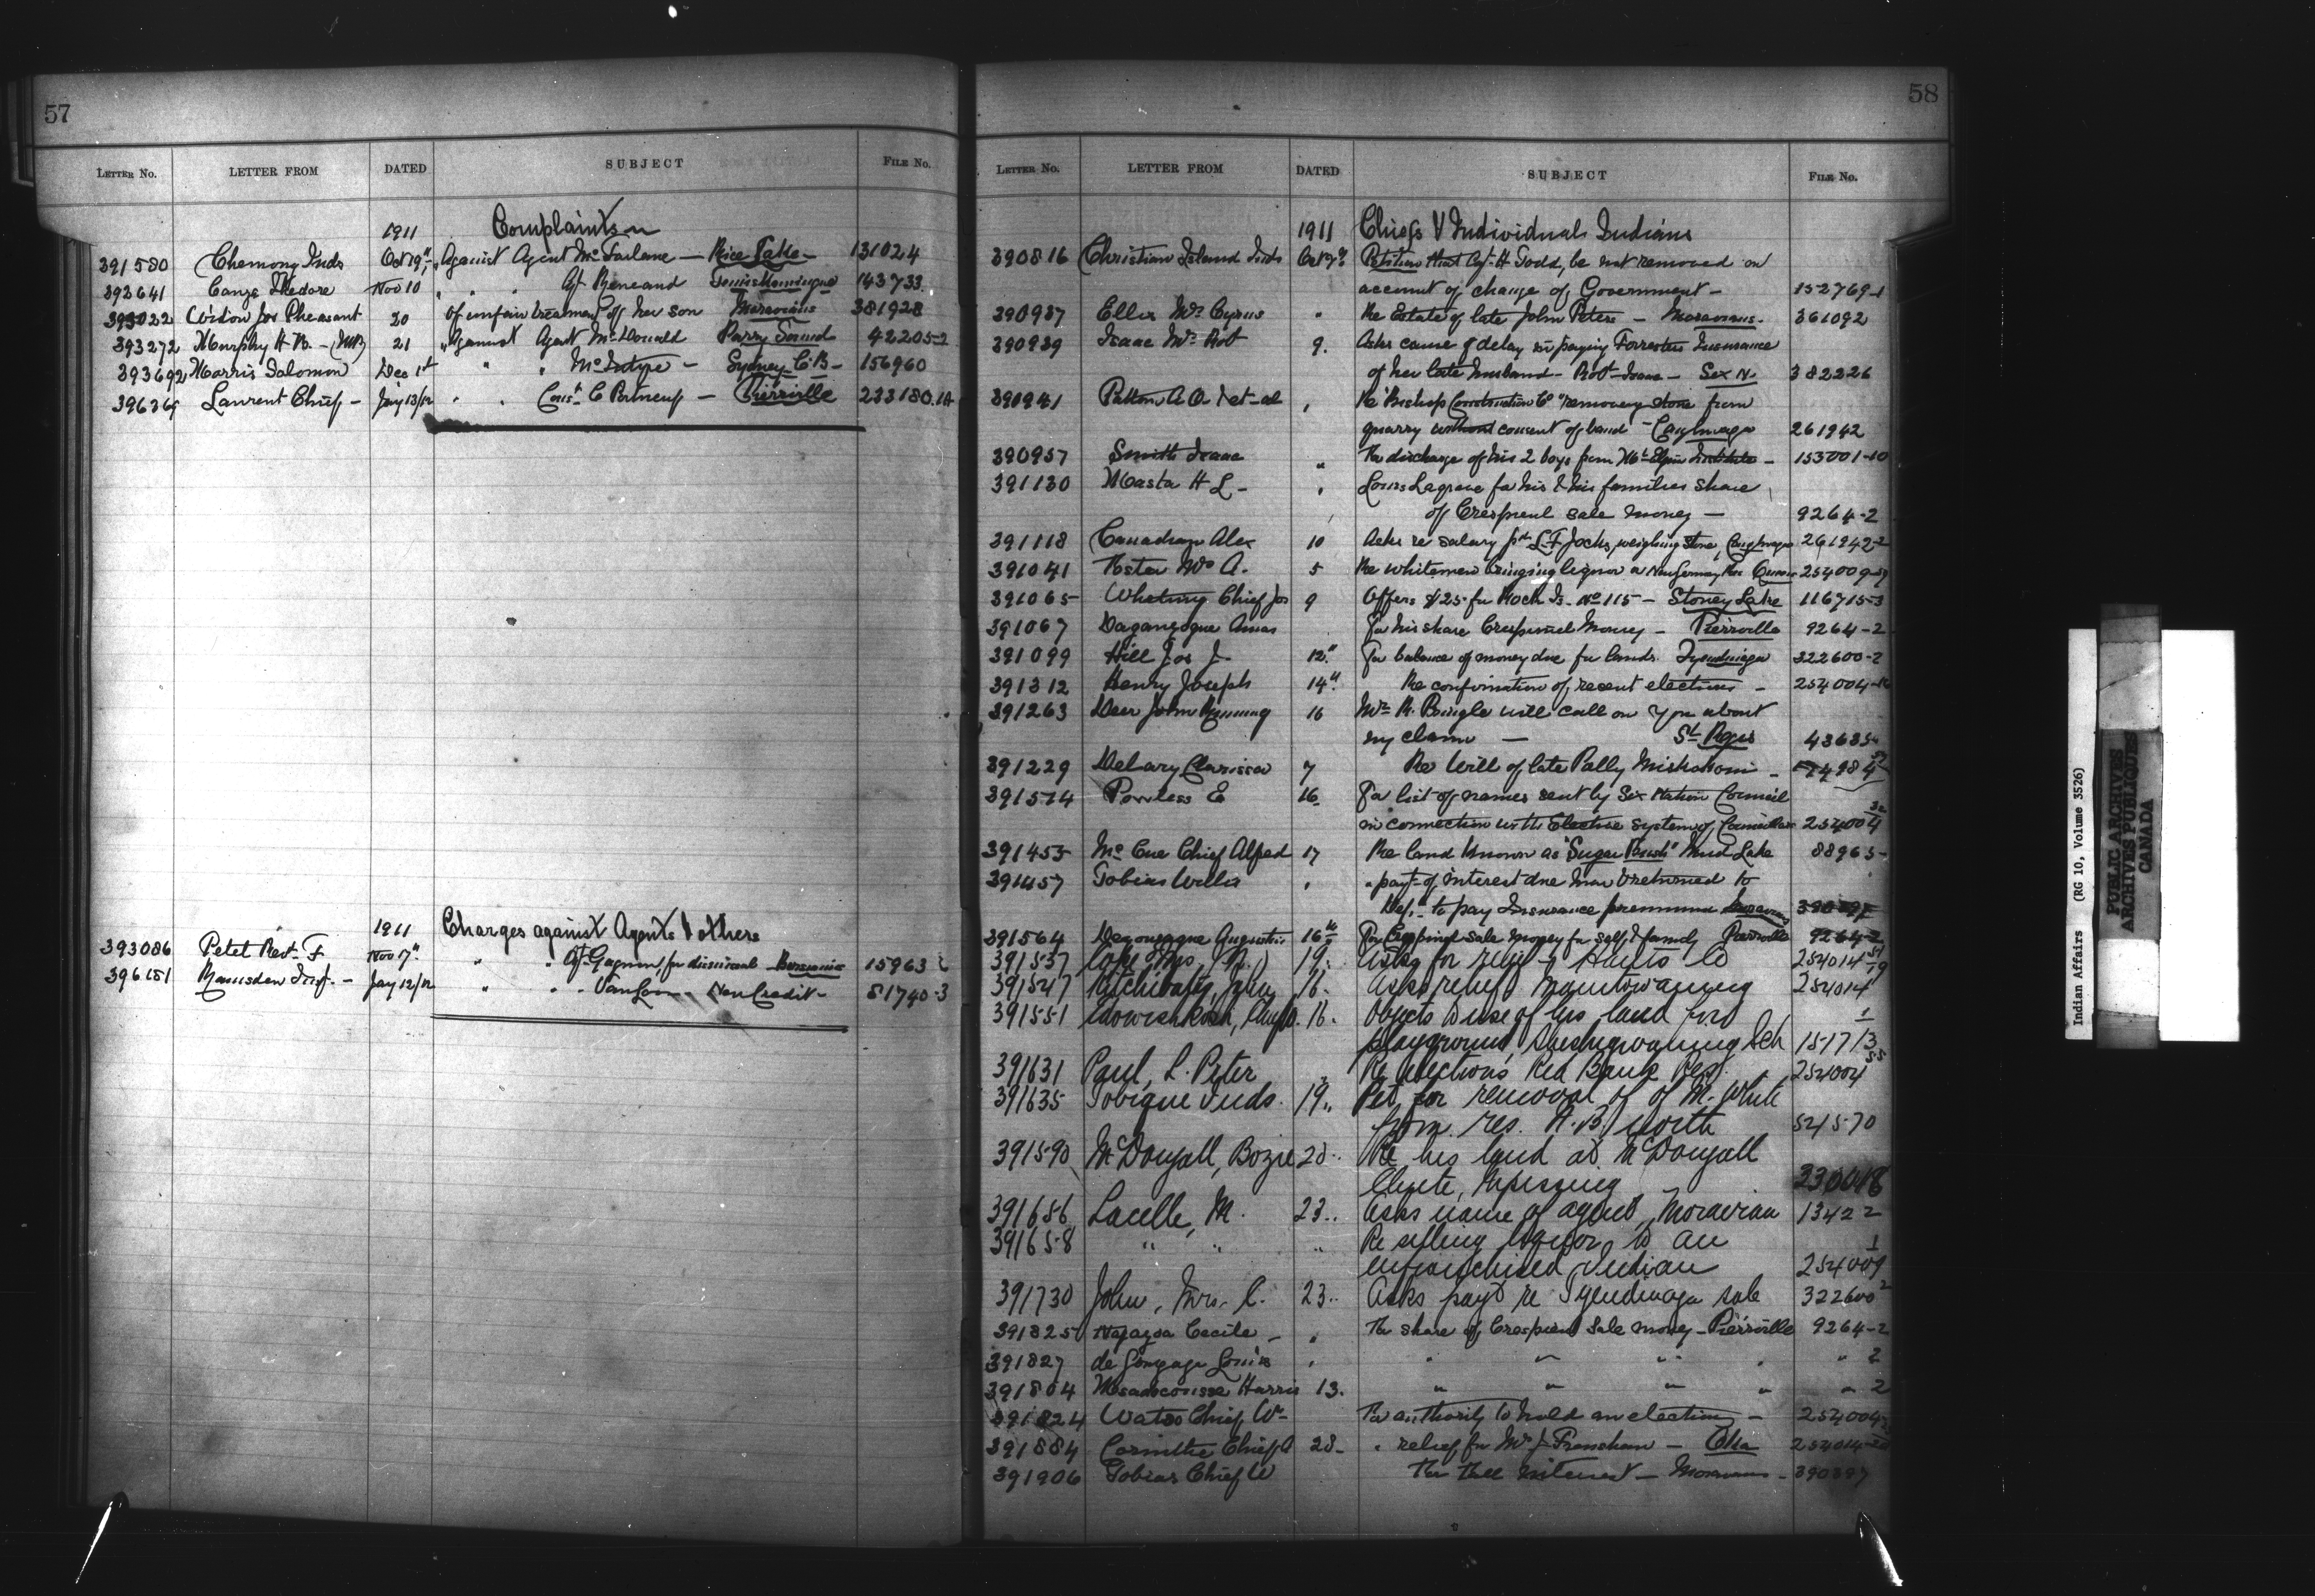 57
LETTER No. LETTER FROM DATED SUBJECT FILE No.
1911 Complaints
391580 Chemong Inds Oct 19" Against Agent McFarlane — Rice Lake — 131024
392641 Canza Thedore Nov 10 " " Agt Reneaud Temiskamingue 143733
393022 Widow Jos Pheasant 20 Of unfair treatment of her son Moravians 381928
393272 Murphy H B — (MP) 21 " Against Agent McDonald Parry Sound 42205-2
393692 Morris Solomon Dec 1st " " McIntyre — Sydney C.B — 156960
396369 Laurent Chief — Jay 13/12 " " Const C Portneuf — Pierrville 233180.1A
1911 Charges against Agents & others
393086 Petet Revd F Nov 7" " " Agt Gagnon for dismissal Bersimis 15963
396151 Ramsden Insp. — Jay 12/12 " " - VanLoon — New Credit — 81740-3
58
LETTER No. LETTER FROM DATED SUBJECT FILE No.
1911 Chiefs & Individual Indians
390816 Christian Island Inds Oct 7" Petition that Agt. H Todd, be not removed on
account of change of Government — 152769-1
390937 Ellis Mrs Cyrus " Re Estate of late John Peters — Moravians. 361092
390939 Isaac Mrs Robt 9. Asks cause of delay in paying Forresters Insurance
of her late husband — Robt Isaac — Six N. 382226
390941 Patton A O. et-al , Re "Bishop Construction Co" removing stone from
quarry without consent of band — Caughnawaga 261942
390957 Smith Isaac " For discharge of his 2 boys from Mt Elgin Institute — 153001-10
391130 Masta H L — , Louis Lagrave for his & his families share
of Crespieul sale money — 9264-2
391118 Canadian Alex 10 Asks re salary pd L.F Jocks, weighing stone, Caughnawaga 261942-2
391041 Foster Mrs A. 5 Re whitemen bringing liquor on New Germany Res 254009
391065 Whetung Chief Jos 9 Offers $25 for Rock Is. No 115 — Stoney Lake 116715-3
391067 For his share Crespieul Money — Pierrville 9264-2
391099 Hill Jos J. 12" For balance of money due for lands. Tyendinaga 322600-2
391312 Henry Joseph 14" Re confirmation of recent elections — 254004
391263 Deer John Running 16 Mr R. Pringle will call on you about
my claim — St Regis 43635
391229 Delary Clarissa 7 Re Will of late Polly Miskokomi —
391574 Powless E 16 For list of names sent by Six Nation Council
in connection with Elective system of Councillors 254004 32
391453 McCue Chief Alfred 17 Re land known as "Sugar Bush" Mud Lake 88965
391457 Tobias Willis , " payt of interest due him & returned to
Dept. to pay Insurance premiums Moravians
391564 Augustin 16th For Crespieul sale money for self & family Pierrville 9264-2
391537 19. Asks for relief — Hants Co 254014
391547 John 16. Asks relief Manitowaning 254014
391551 16. Objects to use of his land for
playground, Sheshegwaning Sch 15171-3
391631 Paul, L. Peter " Re elections Red Bank Res. 254004 55
391635 Tobique Inds. 19.. Pet. for removal of M. White
from res. N.B. north 5215-70
391590 McDougall, Bozie 20.. Re his land at McDougall
Chute, Nipissing 330418
391656 Lacelle, M. 23.. Asks name of agent, Moravian 13422
391658 " " .. Re selling liquor to an
enfranchised Indian 254009 1
391730 John, Mrs. C. 23.. Asks payt re Tyendinaga sale 322600 2
391825 Cecile — " For share of Crespieul Sale money — Pierrville 9264-2
391827 de Gonzague Louis , " " " " " 2
391804 Harris 13. " " " " " 2
391824 Watso Chief W — For authority to hold an election — 254004
391884 Corinthe Chief A 28 — " relief for Mrs J Frenchan — Oka 254014
391906 Tobias Chief W For the interest — Moravians — 390897
Indian Affairs (RG 10, Volume 3526)
PUBLIC ARCHIVES
ARCHIVES PUBLIQUES
CANADA